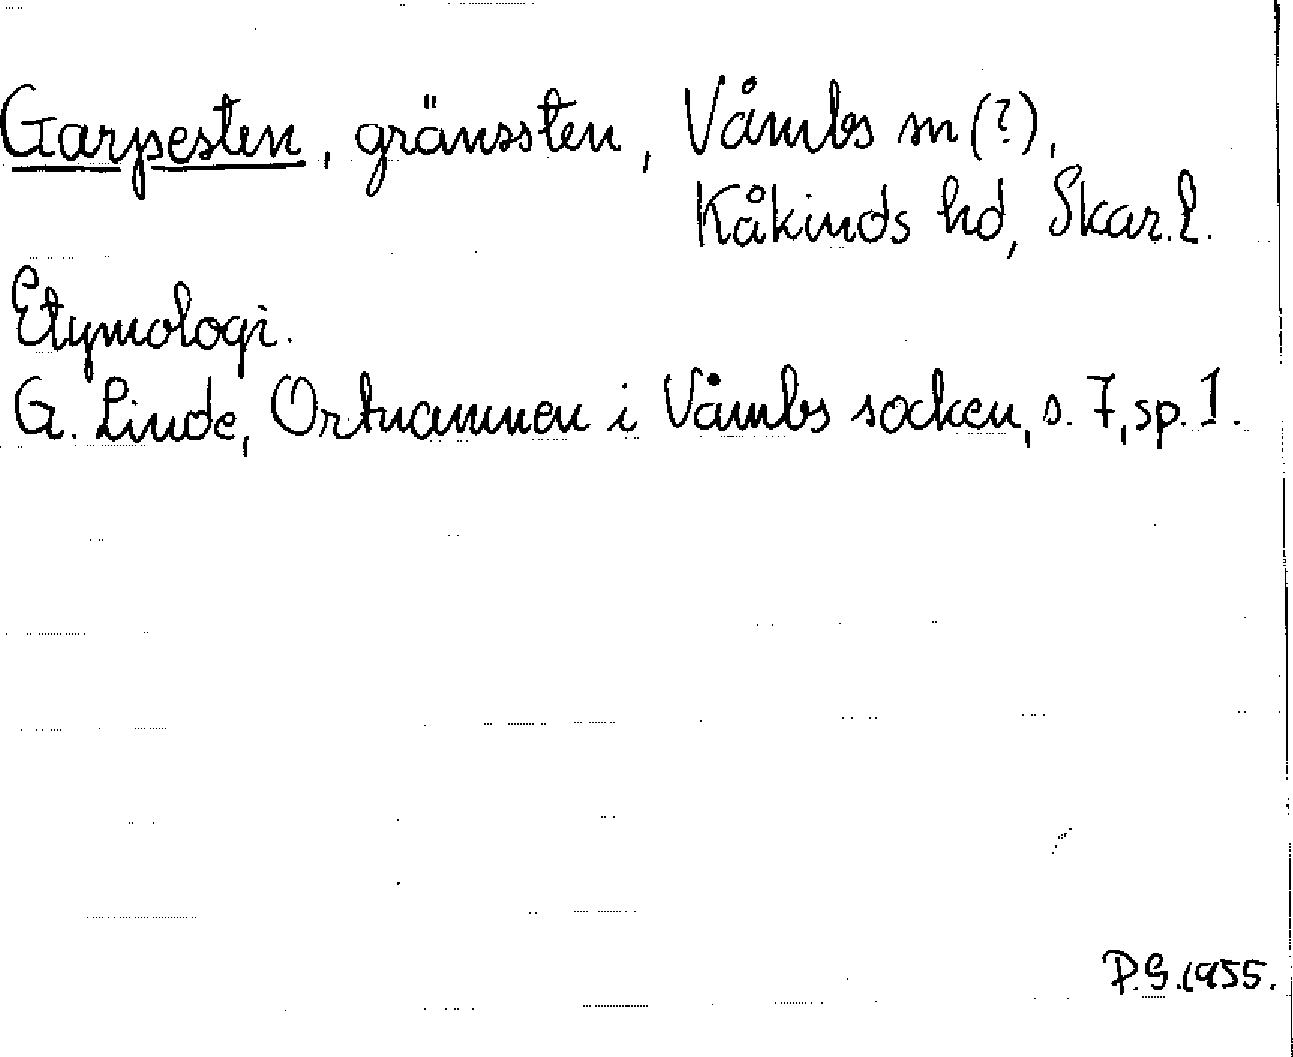 Garpesten, gränssten, Våmbs sn (?),
Kåkinds hd, Skar. l.
Etymologi.
G. Linde, Ortnamnen i Våmbs socken, s. 7, sp. 1.
P.G. 1955.